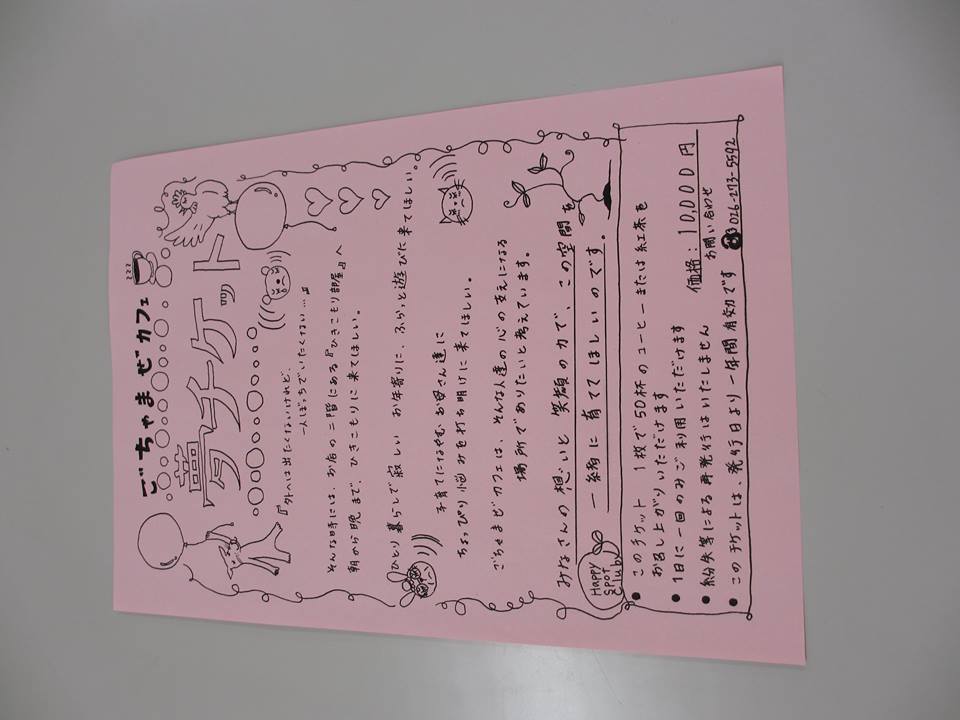 ごちゃまぜカフェ
夢チケット
『外へは出たくないけれど、
一人ぼっちでいたくない…』
そんな時には、お店の二階にある『ひきこもり部屋』へ
朝から晩まで、ひきこもりに来てほしい。
ひとり暮らしで寂しい お年寄りに、ふらっと遊びに来てほしい。
子育てになやむ お母さん達に
ちょっぴり悩みを打ち明けに 来てほしい。
ごちゃまぜカフェは、そんな人達の心の支えになる
場所でありたいと考えています。
みなさんの想いと 笑顔の力で、この空間を
一緒に 育ててほしいのです。
Happy
Spot
Club
● このチケット 1枚で50杯のコーヒーまたは紅茶を
お召し上がりいただけます
● 1日に一回のみご利用いただけます
● 紛失等による再発行はいたしません
● このチケットは、発行日より一年間有効です
価格：10,000円
お問い合わせ
☎026-273-5592